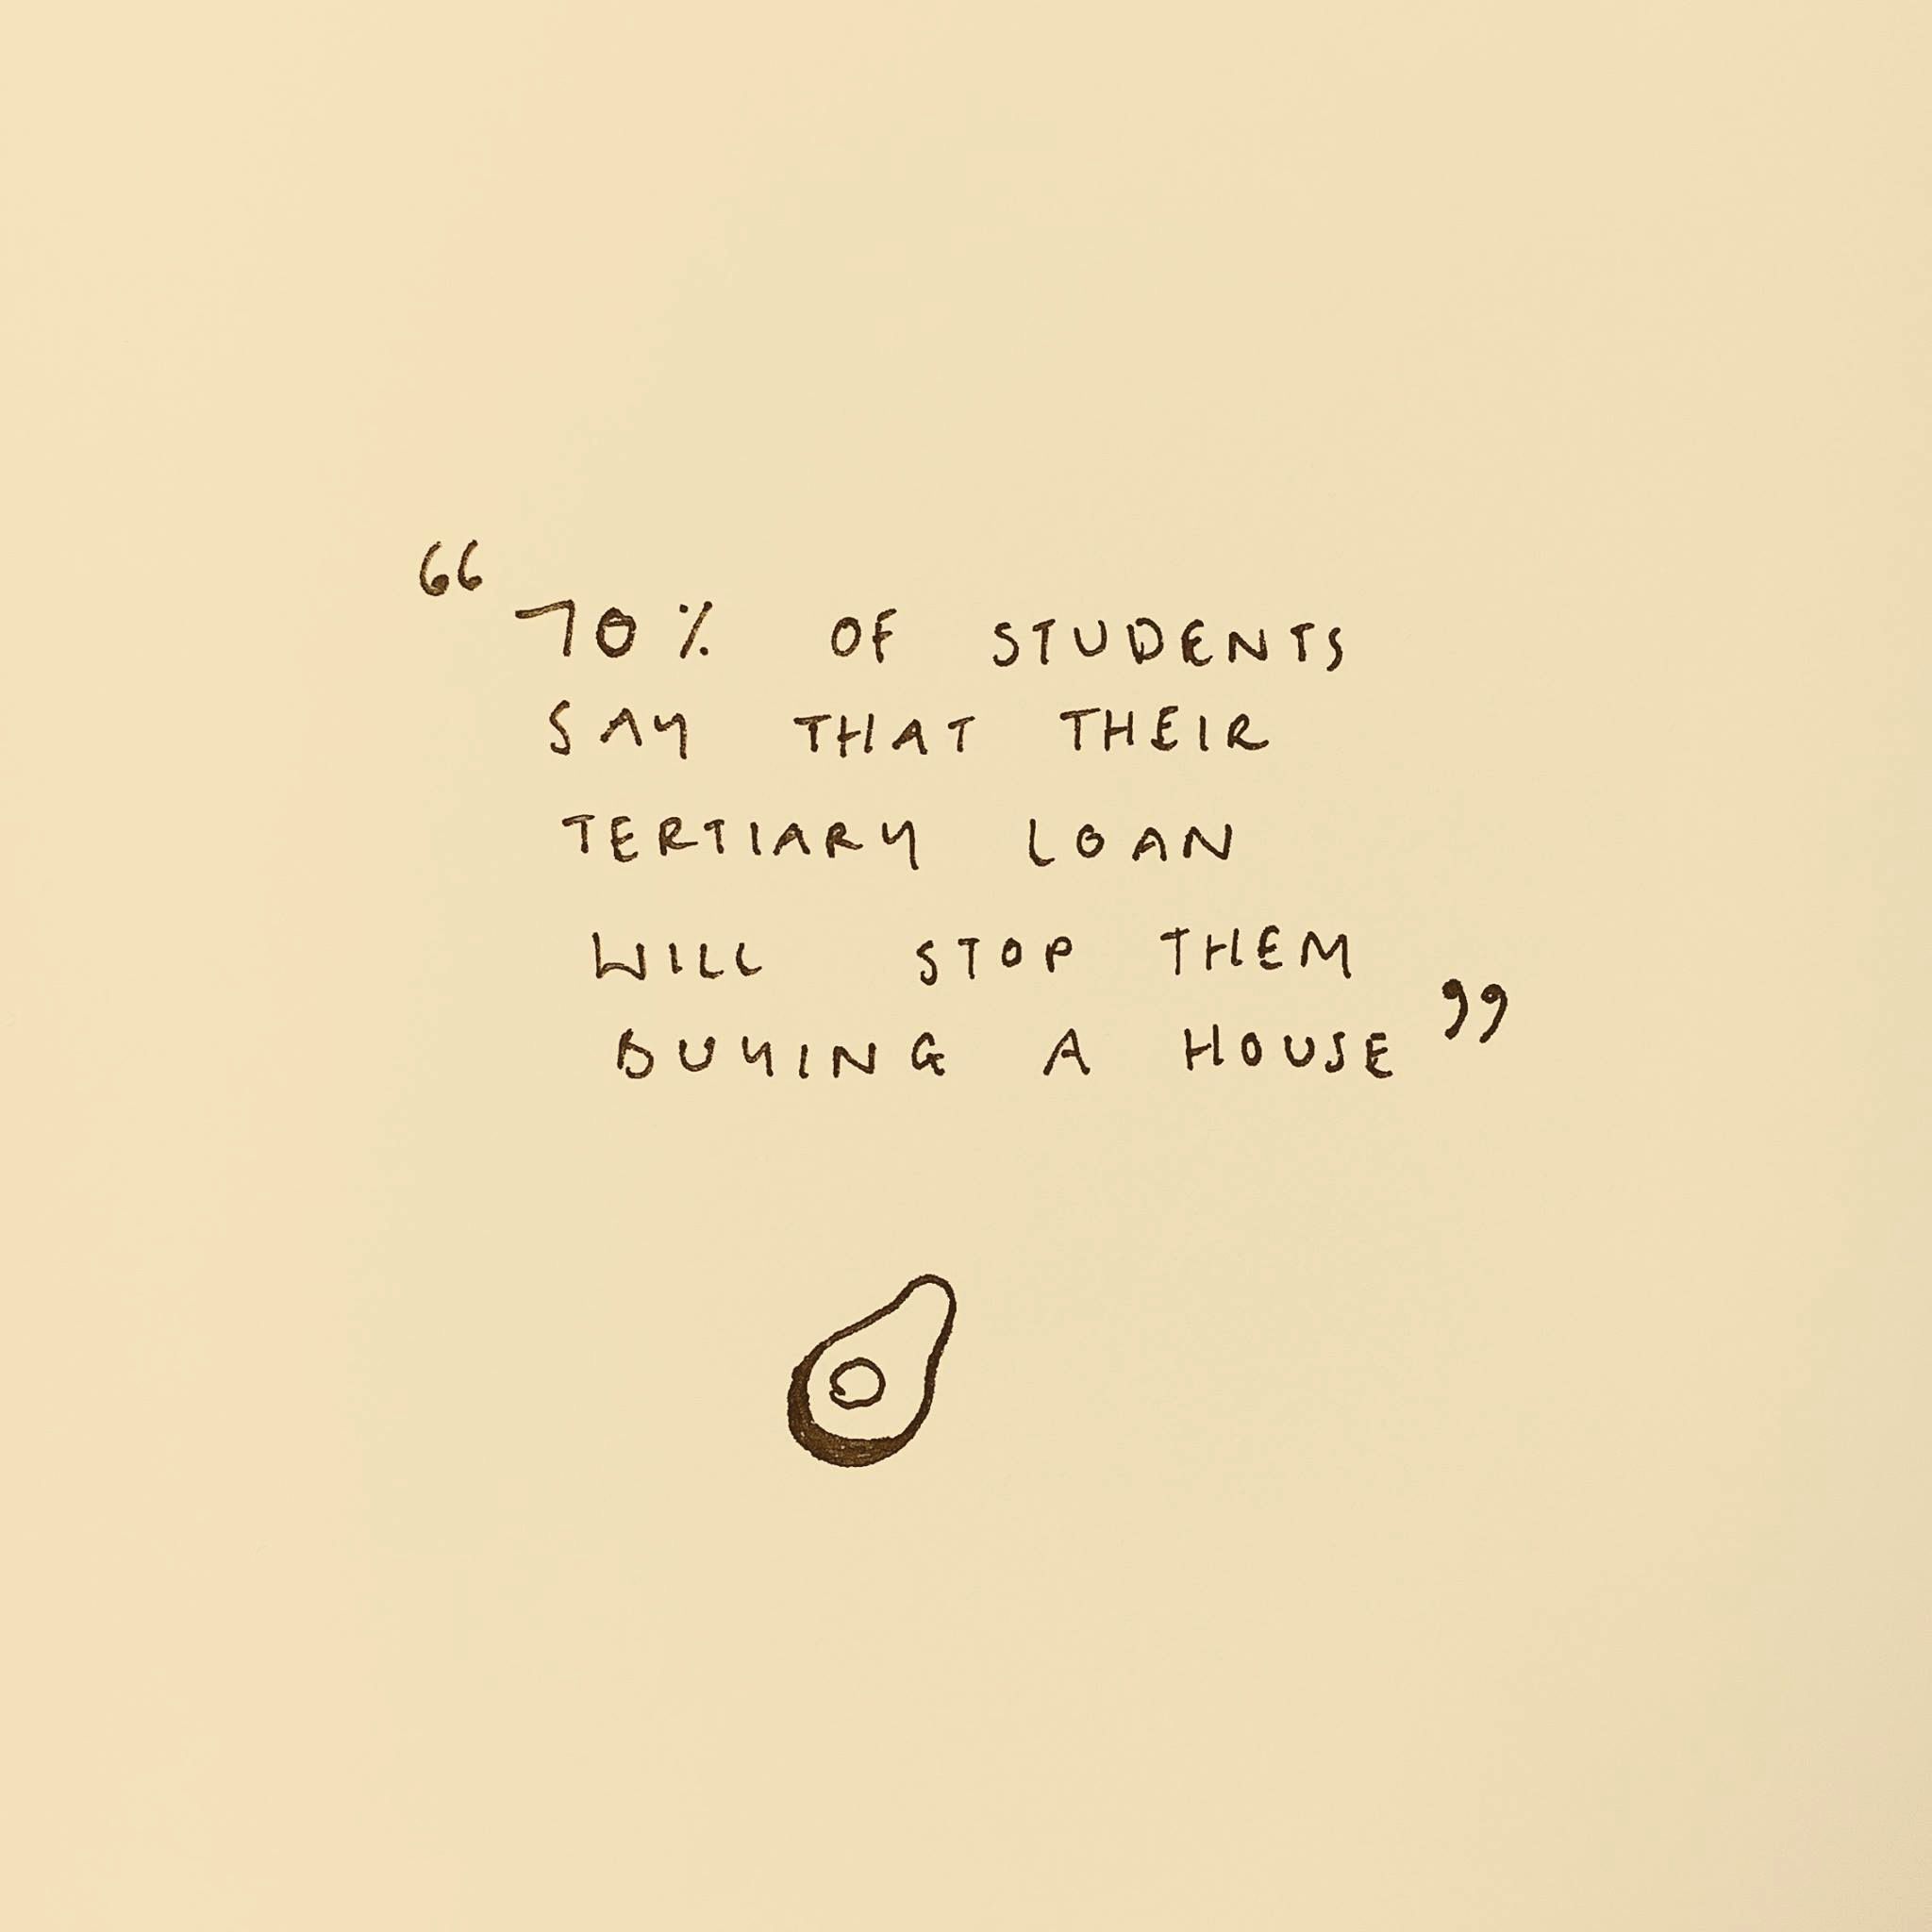 “70% OF STUDENTS
SAY THAT THEIR
TERTIARY LOAN
WILL STOP THEM
BUYING A HOUSE”